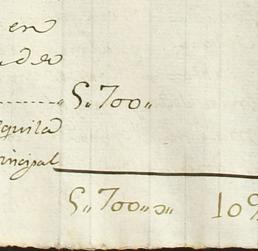 en
5„700„
quita
rincipal
5„700„„ 10